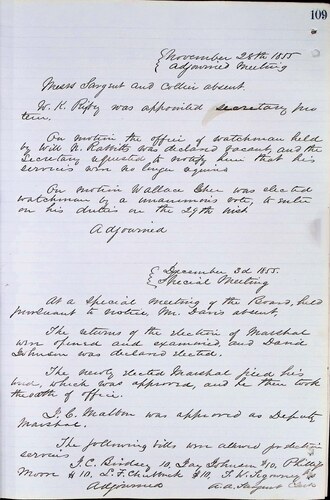 109
November 28th 1855
Adjourned Meeting
Messrs Sargent and Collin absent.
W. K. Rixby was appointed secretary pro
tem.
On motion the office of watchman held
by Will N. Rabbitts was declared vacant, and the
Secretary requested to notify him that his
services were no longer
On motion Wallace was elected
watchman by a unanimous vote, to enter
on his duties on the 29th inst
Adjourned
December 3d 1855.
Special Meeting
At a Special meeting of the Board, held
pursuant to notice, Mr. Davis absent,
The returns of the election of Marshal
were opened and examined, and David
Johnson was declared elected.
The newly elected Marshal filed his
bond, which was approved, and he then took
the oath of office.
J. C. Malbon was approved as Deputy
Marshal.
The following bills were allowed for election
services
J. C. Birdsey 10, Jay Johnson $10, Philip
Moore $10, L. F. Chubbuck $10, F. W.
Adjourned
A. A. Sargent